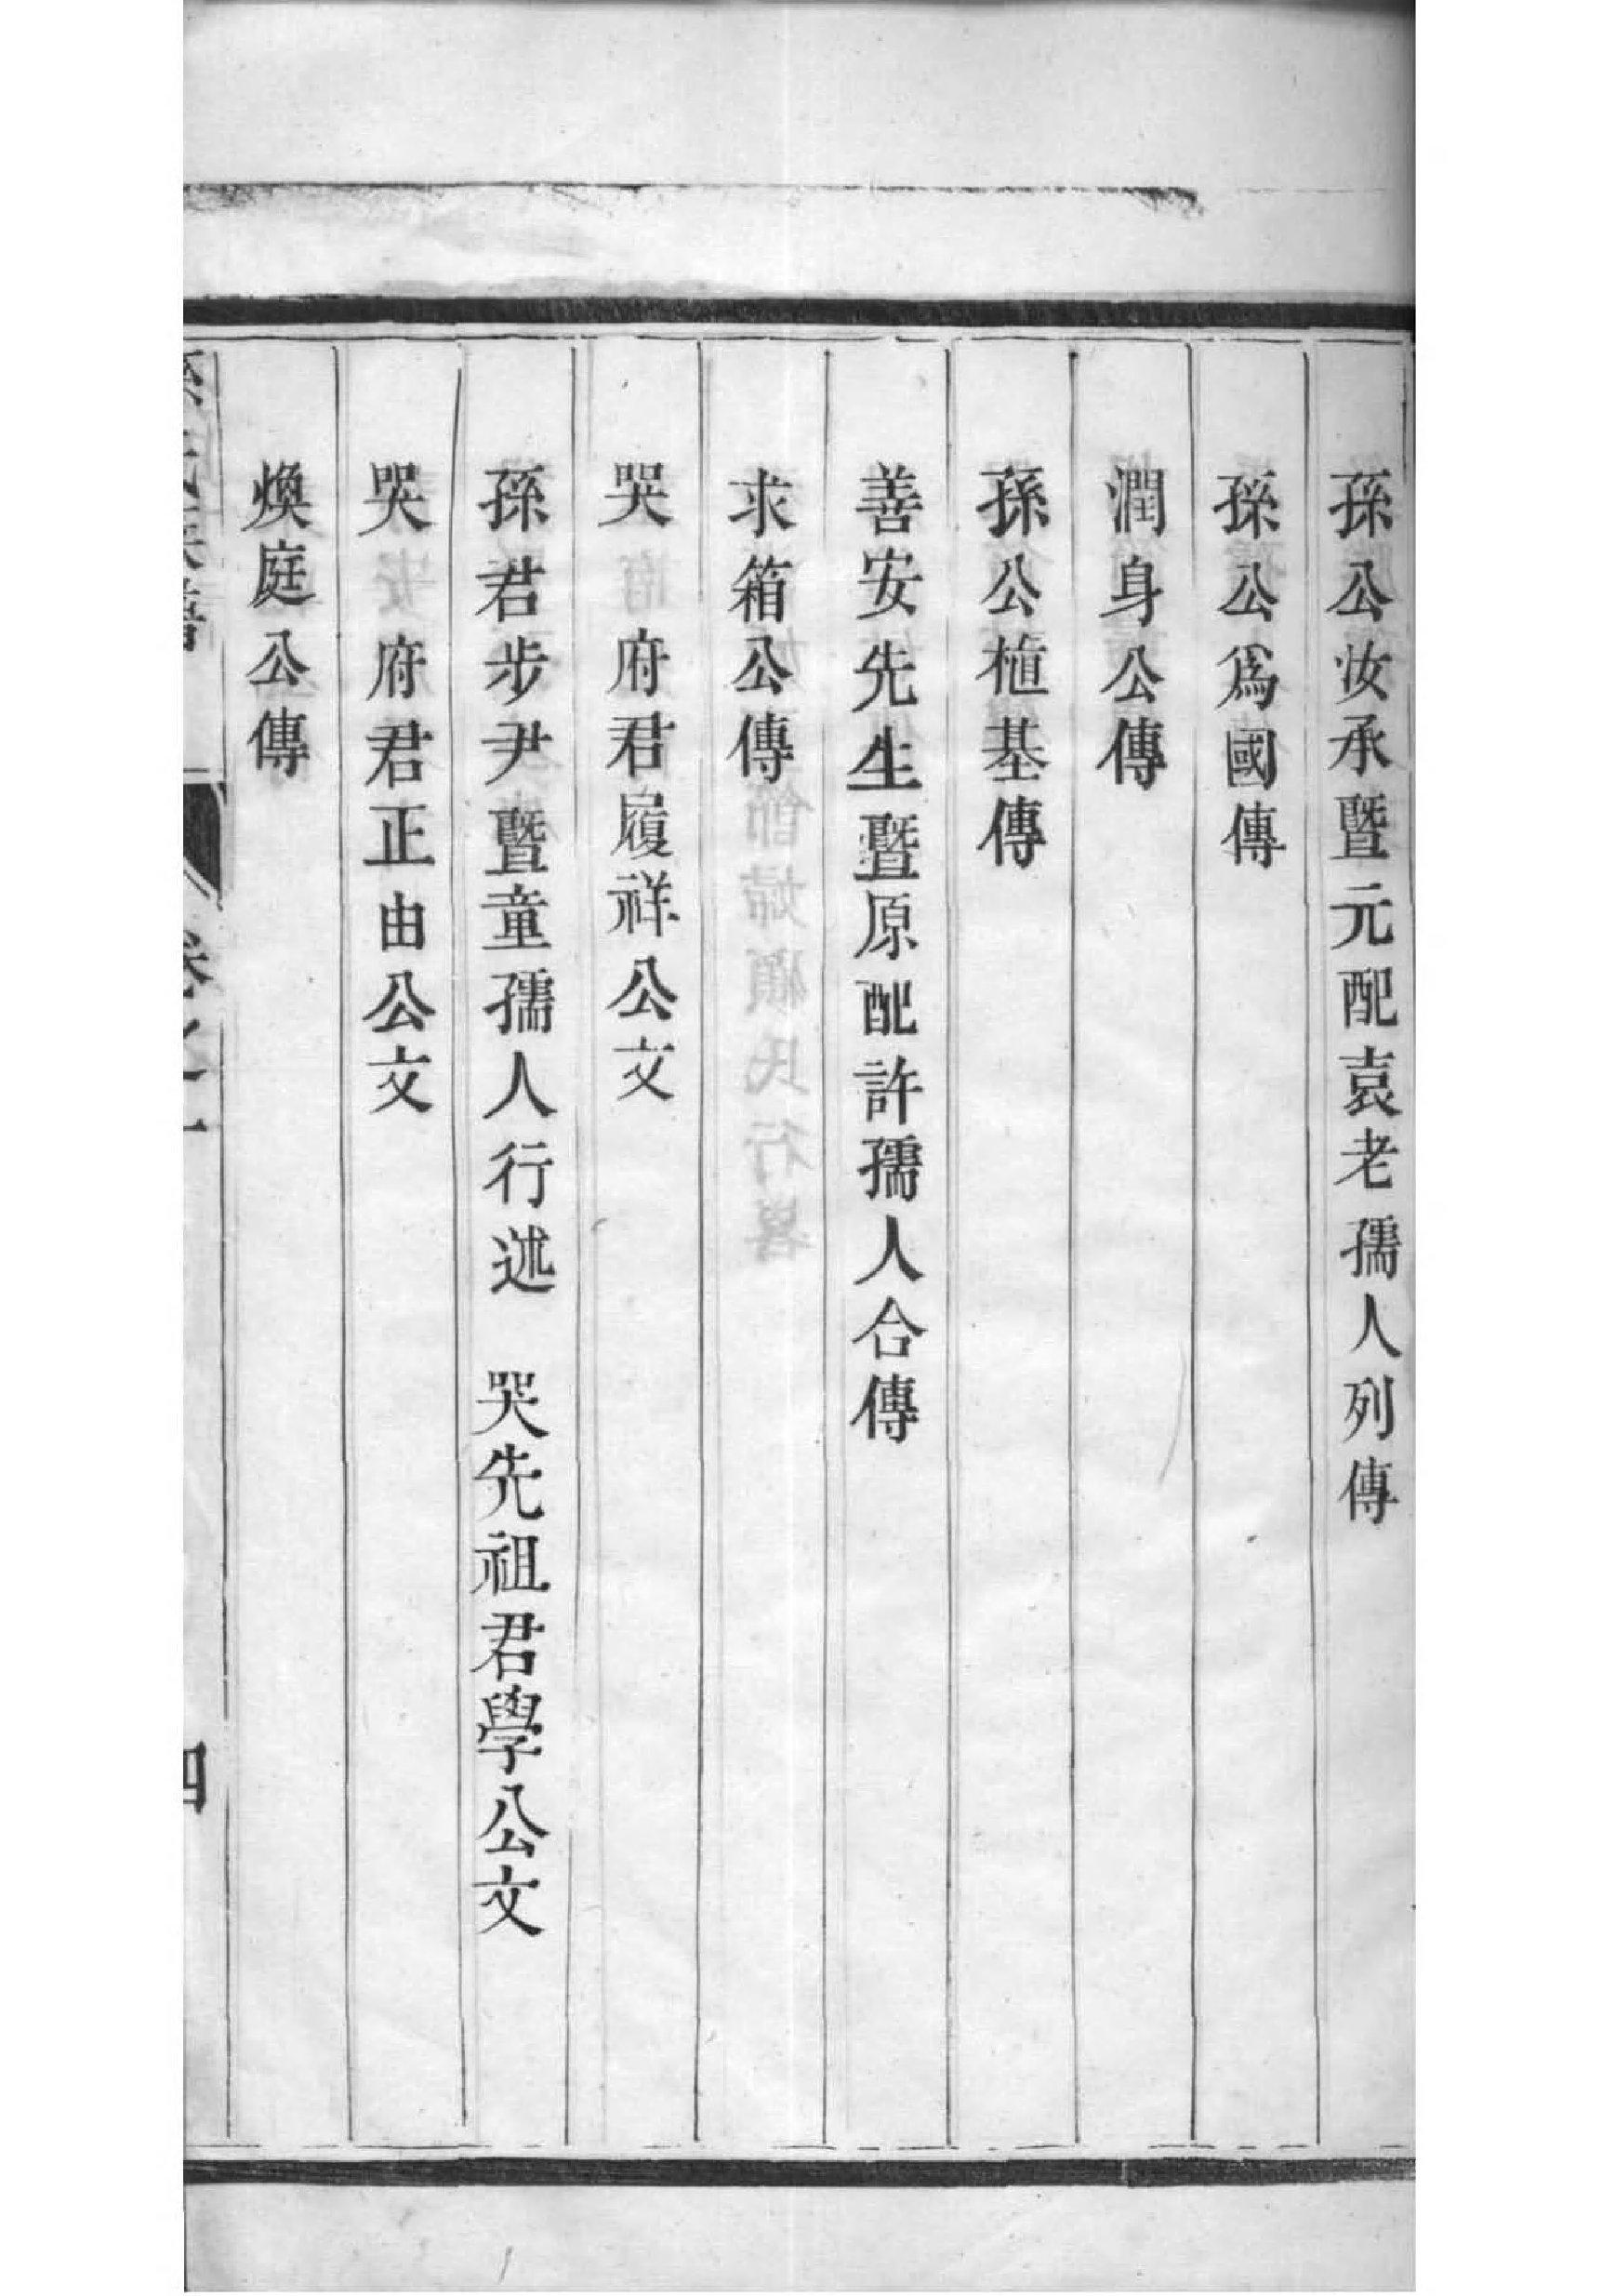 孫公汝承暨元配袁老孺人列傳
孫公爲國傳
潤身公傳
孫公植基傳
善安先生暨原配許孺人合傳
求箱公傳
哭 府君履祥公文
孫君步尹暨童孺人行述 哭先祖君學公文
哭 府君正由公文
煥庭公傳
卷之一
四